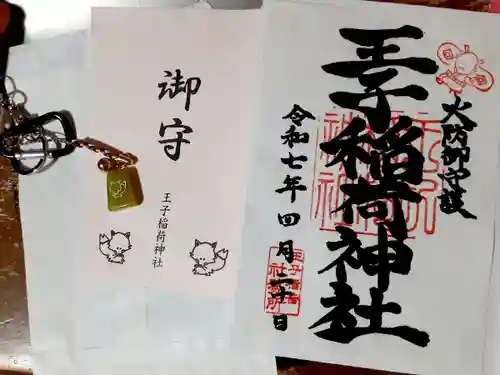 火防御守護
王子稲荷神社
令和七年四月二十日
王子稲荷
社務所
御守
王子稲荷神社